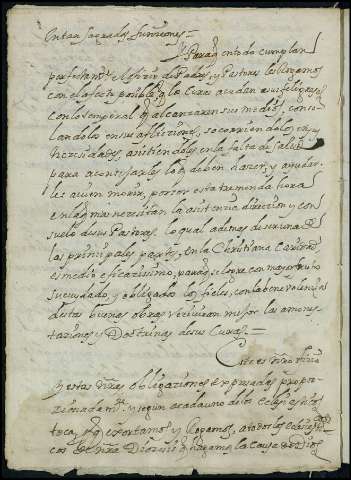 en tan sagradas funciones =
Para q̃ en todo cumplan
perfectam.te el oficio de Padres, y Pastores les Rogamos
con el afecto posible, q̃ los Curas acudan a sus feligreses
con lo temporal q̃ alcanzaren sus medios, conso
landolos en sus aflicciones, socorriendolos en sus
necesidades, asistiendoles en la falta de salud
para aconsejarles lo q̃ deben hazer, y ayudar
les a bien morir, por ser esta tremenda hora
en la q̃ mas necesitan la asistencia direccion y con
suelo de sus Pastores. Lo qual ademas de ser una de
las principales partes, en la Christiana Caridad
es medio eficacissimo, para q̃ se logre con mayor fruto
su cuydado, y obligados los fieles, con la benevolencia
destas buenas obras reciviran mejor las amones
taziones y Doctrinas de sus Curas. =
Este es nr̃o
y estas nr̃as obligaziones expresadas propor
zionadam.te y segun a cada uno de los eclesiasticos
toca, q̃ exortamos y Rogamos, a todos los
de nr̃a Diocesis q̃ hagamos la causa de Dios